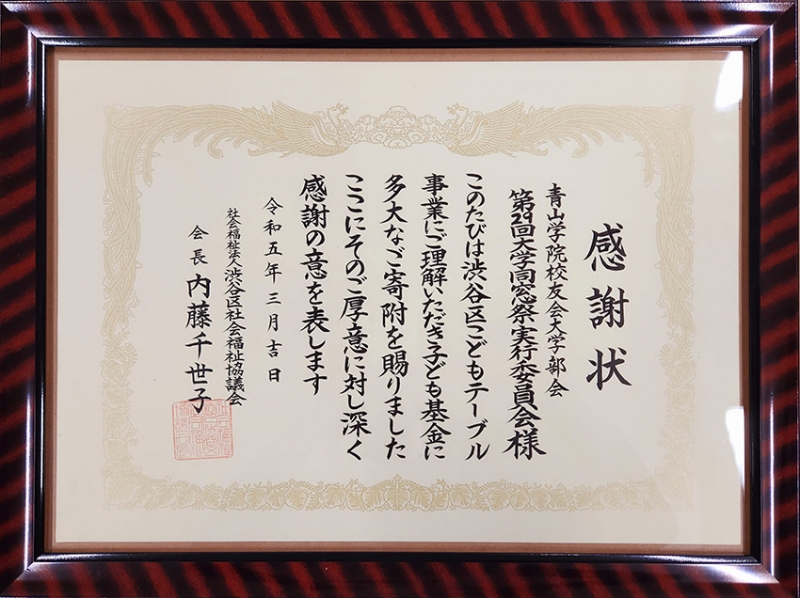 感謝状
青山学院校友会大学部会
第29回大学同窓祭実行委員会様
このたびは渋谷区こどもテーブル
事業にご理解いただき子ども基金に
多大なご寄附を賜りました
ここにそのご厚意に対し深く
感謝の意を表します
令和五年三月吉日
社会福祉法人渋谷区社会福祉協議会
会長 内藤千世子